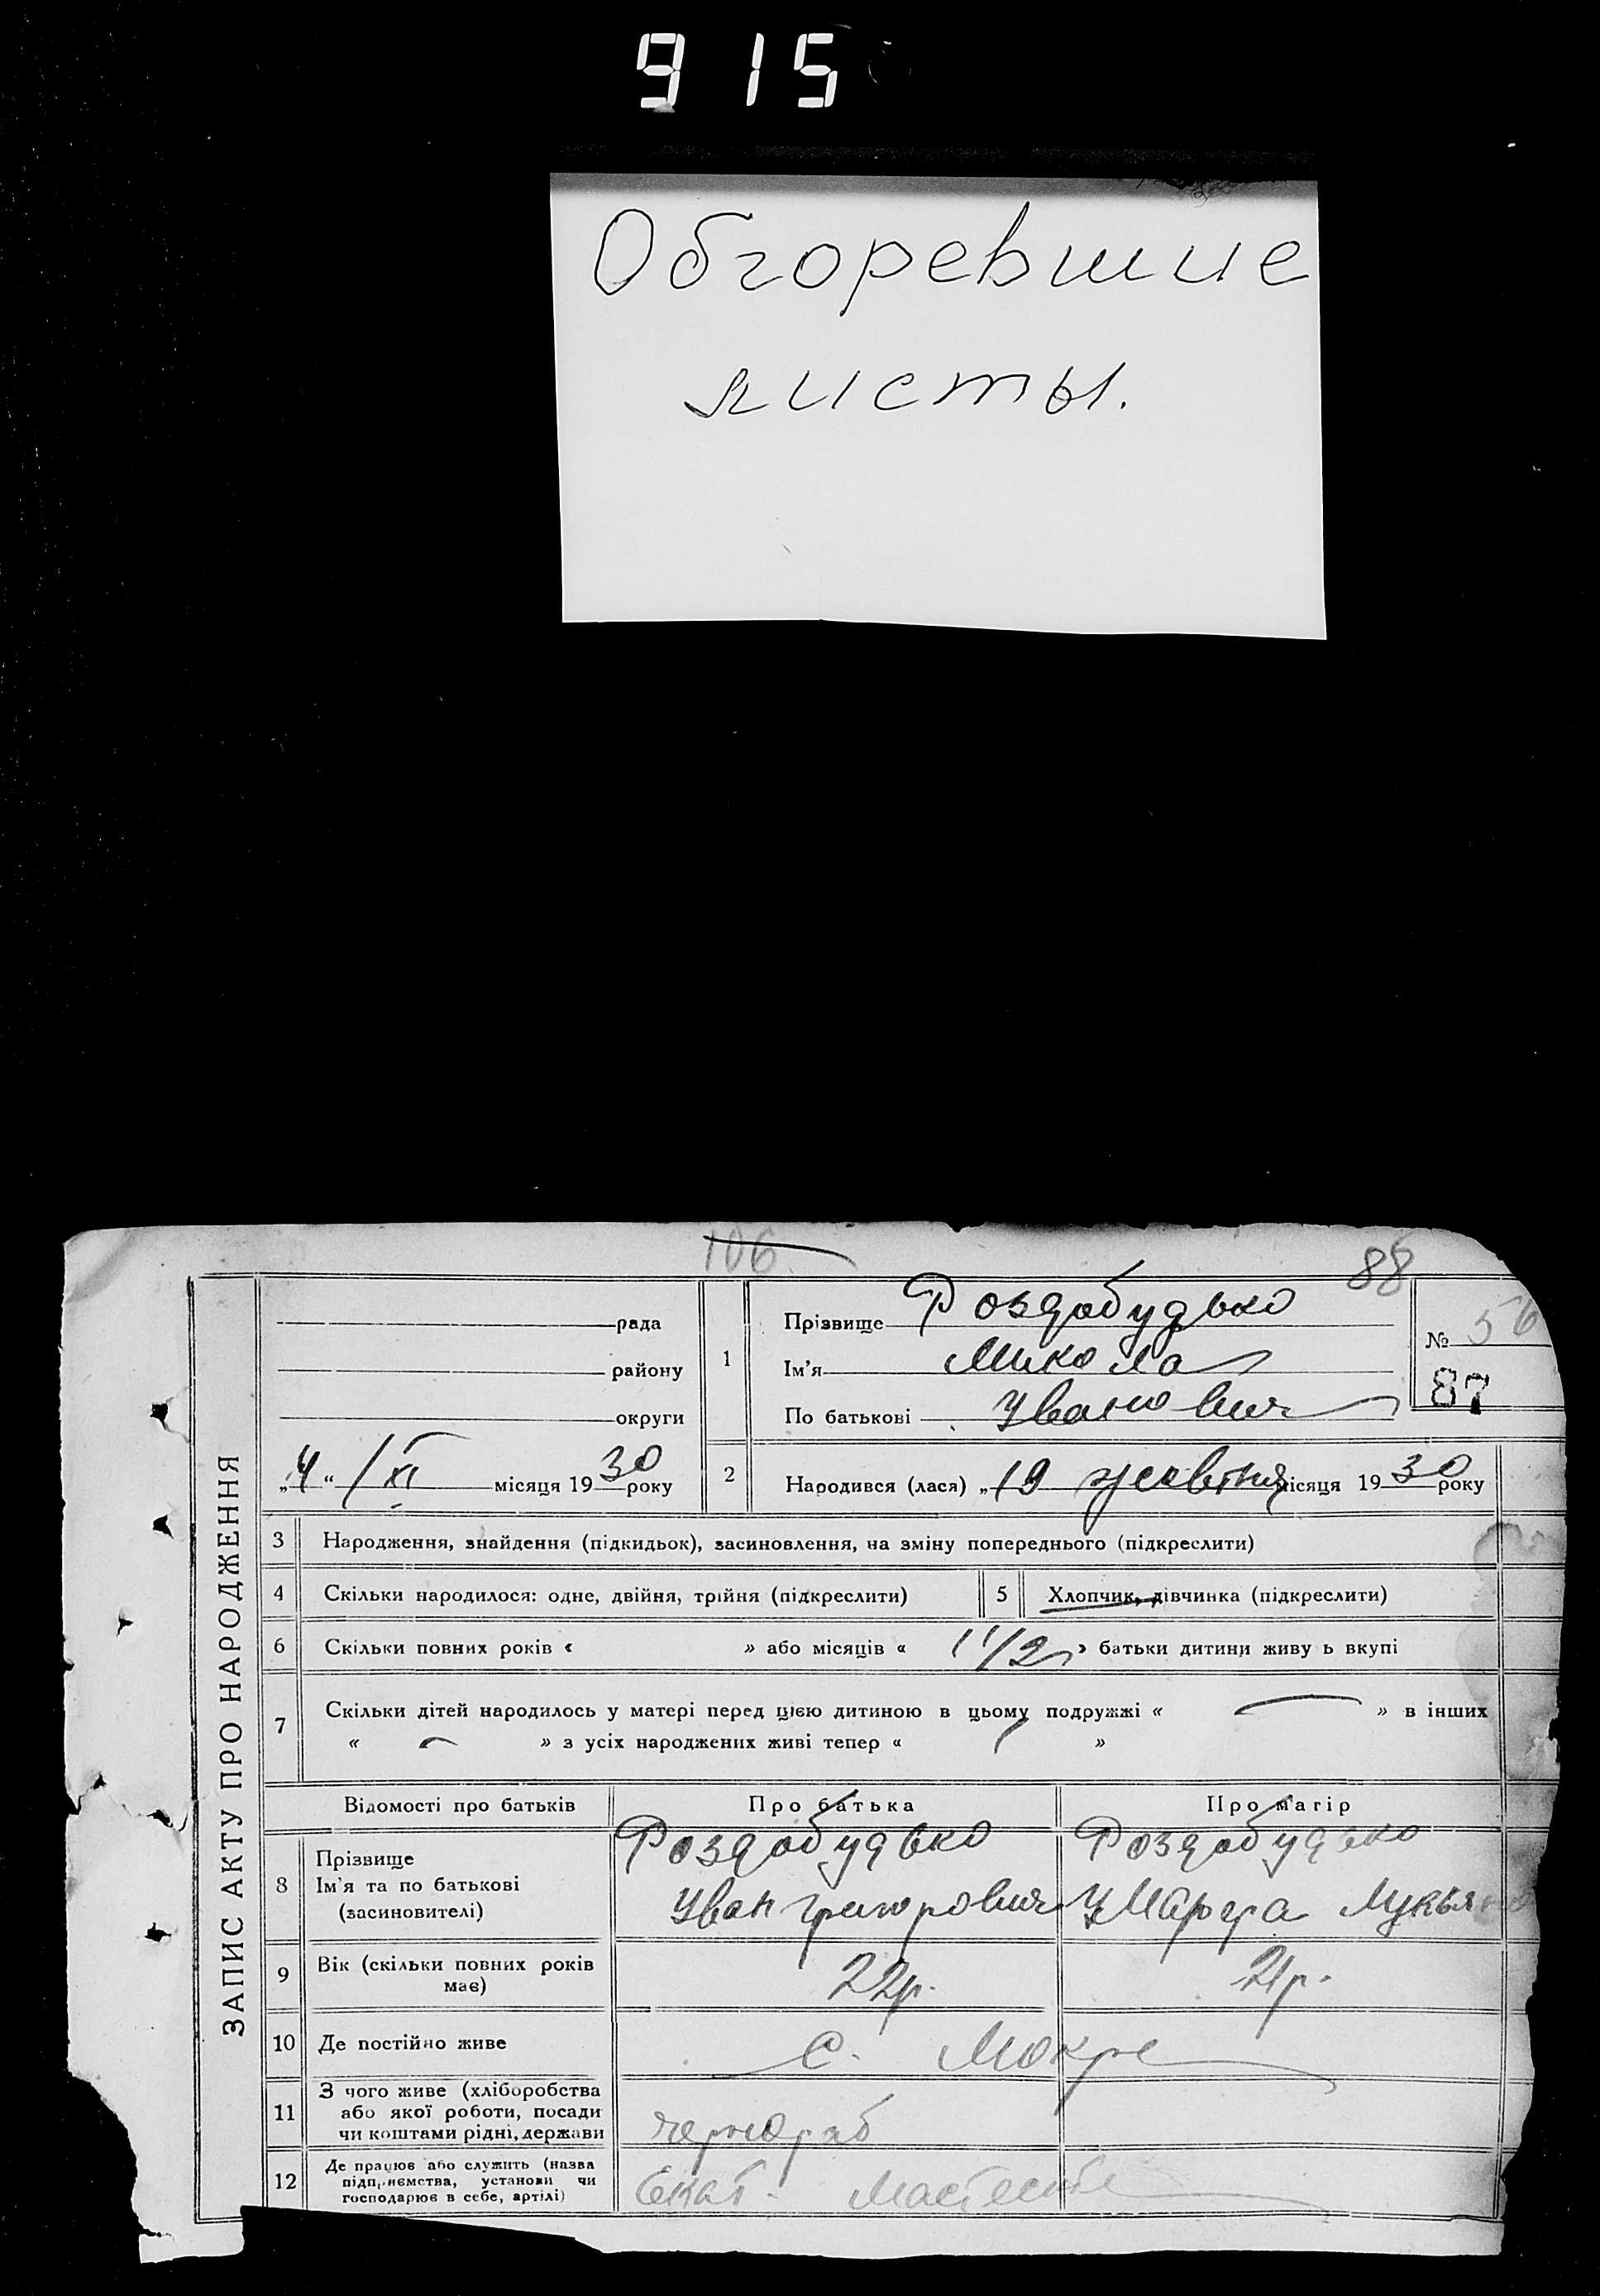 915
Обгоревшие
листы.
106
88
рада
району
округи
„4“ /XI місяця 1930 року
1
Прізвище Роздобудько
Ім’я Микола
По батькові Иванович
№ 56
87
2
Народився (лася) „19 жовтня місяця 1930 року
ЗАПИС АКТУ ПРО НАРОДЖЕННЯ
3 Народження, знайдення (підкидьок), засиновлення, на зміну попереднього (підкреслити)
4 Скільки народилося: одне, двійня, трійня (підкреслити)
5 Хлопчик, дівчинка (підкреслити)
6 Скільки повних років « » або місяців « 1 1/2 » батьки дитини живу ь вкупі
7 Скільки дітей народилось у матері перед цією дитиною в цьому подружжі « — » в інших
« — » з усіх народжених живі тепер « »
Відомості про батьків Про батька Про матір
8 Прізвище
Ім’я та по батькові
(засиновителі)
Роздобудько
Иван Григорович
Роздобудько
Лукья
9 Вік (скільки повних років
має)
22р. 21р.
10 Де постійно живе с. Мокре
11 З чого живе (хліборобства
або якої роботи, посади
чи коштами рідні, держави
чернораб
12 Де працює або служить (назва
підприємства, установи чи
господарює в себе, артілі)
Екат.